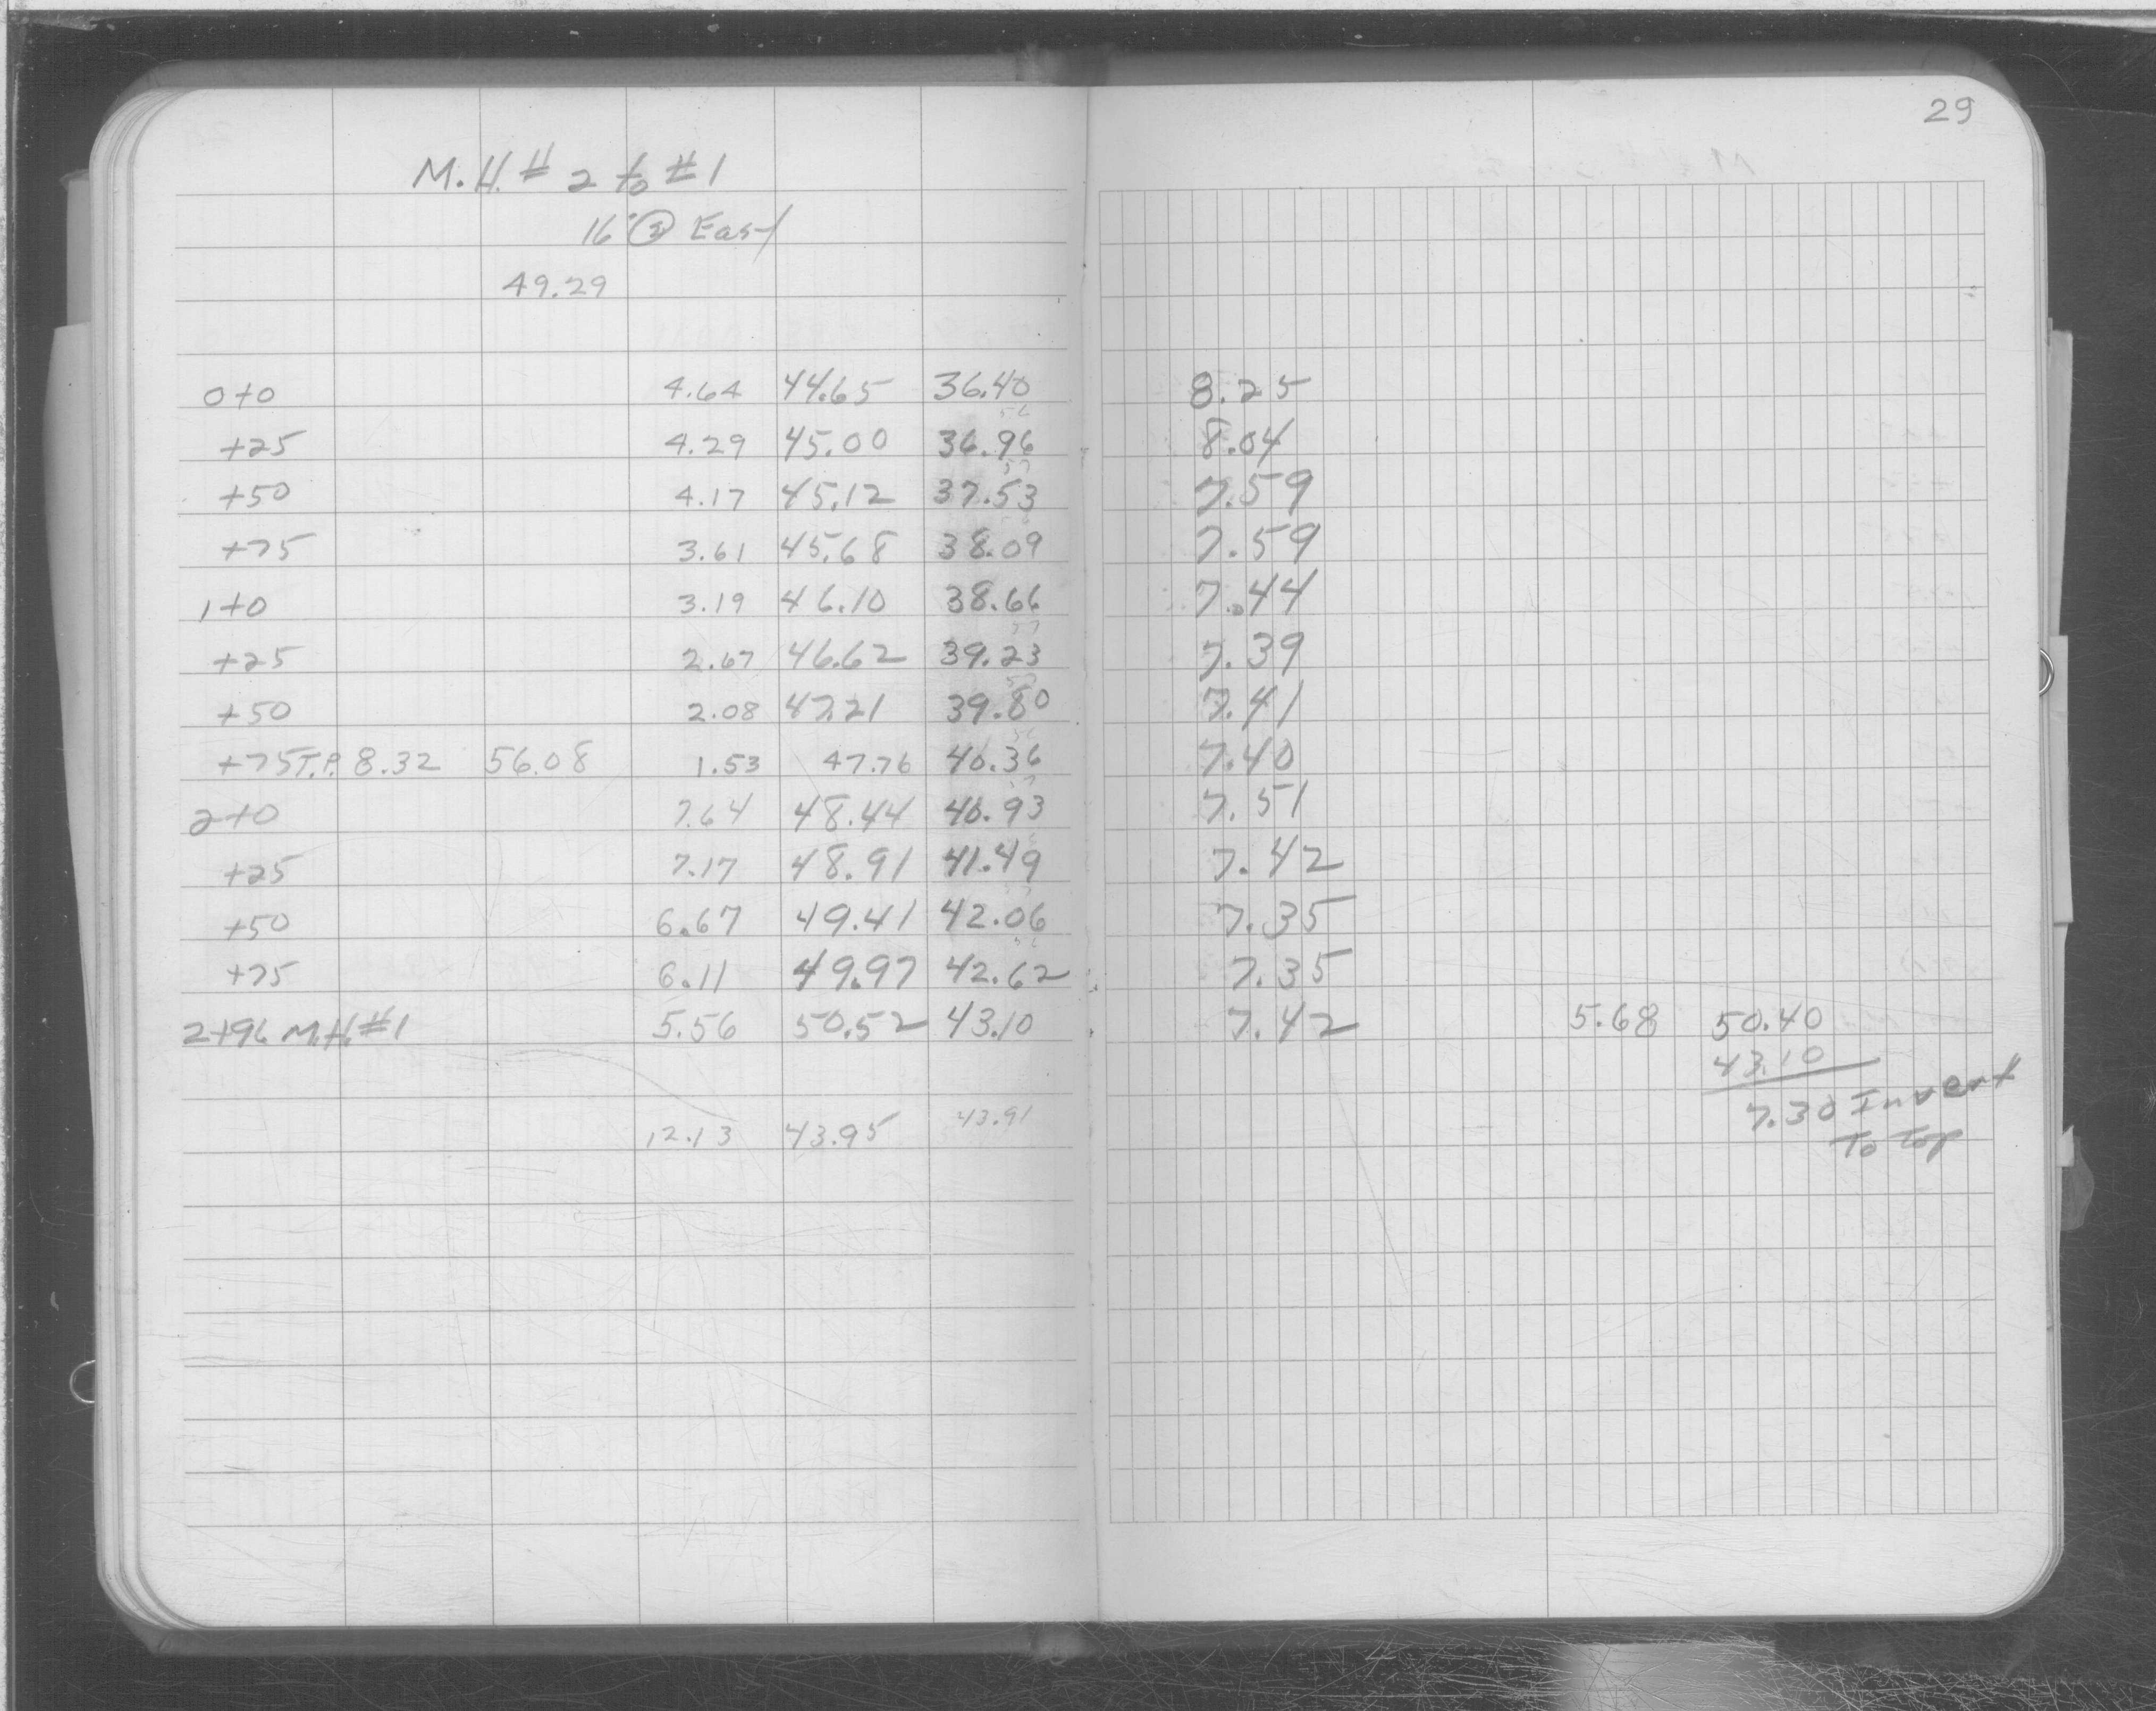 29
M.H.# 2 to #1
16' @ East
49.29
0+0 4.64 44.65 36.40 8.25
56
+25 4.29 45.00 36.96 8.04
57
+50 4.17 45.12 37.53 7.59
+75 3.61 45.68 38.09 7.59
1+0 3.19 46.10 38.66 7.44
57
+25 2.67 46.62 39.23 7.39
57
+50 2.08 47.21 39.80 7.41
56
+75 T.P. 8.32 56.08 1.53 47.76 40.36 7.40
57
2+0 7.64 48.44 40.93 7.51
+25 7.17 48.91 41.49 7.42
57
+50 6.67 49.41 42.06 7.35
56
+75 6.11 49.97 42.62 7.35
2+96 M.H.#1 5.56 50.52 43.10 7.42 5.68 50.40
43.10
7.30 Invert
To Top
12.13 43.95 43.91